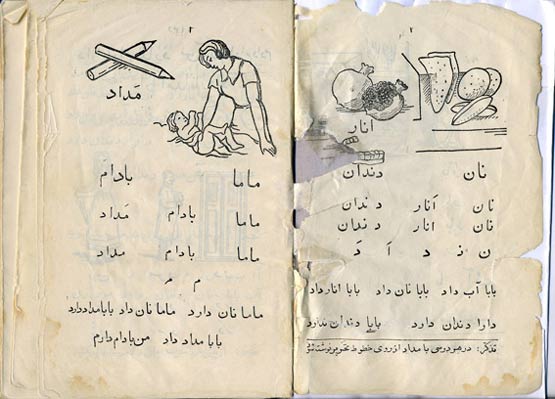 ۲
انار
نان دندان
نان انار دندان
نان انار دندان
ن نـ د آ دَ
بابا آب داد بابا نان داد بابا انار داد
دارا دندان دارد بابا دندان ندارد
تذکر: با مداد از روی خطوط
۳
مَداد
ماما بادام
ماما بادام مَداد
ماما بادام مداد
م مـ
ماما نان دارد ماما نان داد بابا مداد دارد
بابا مداد داد من بادام دارم